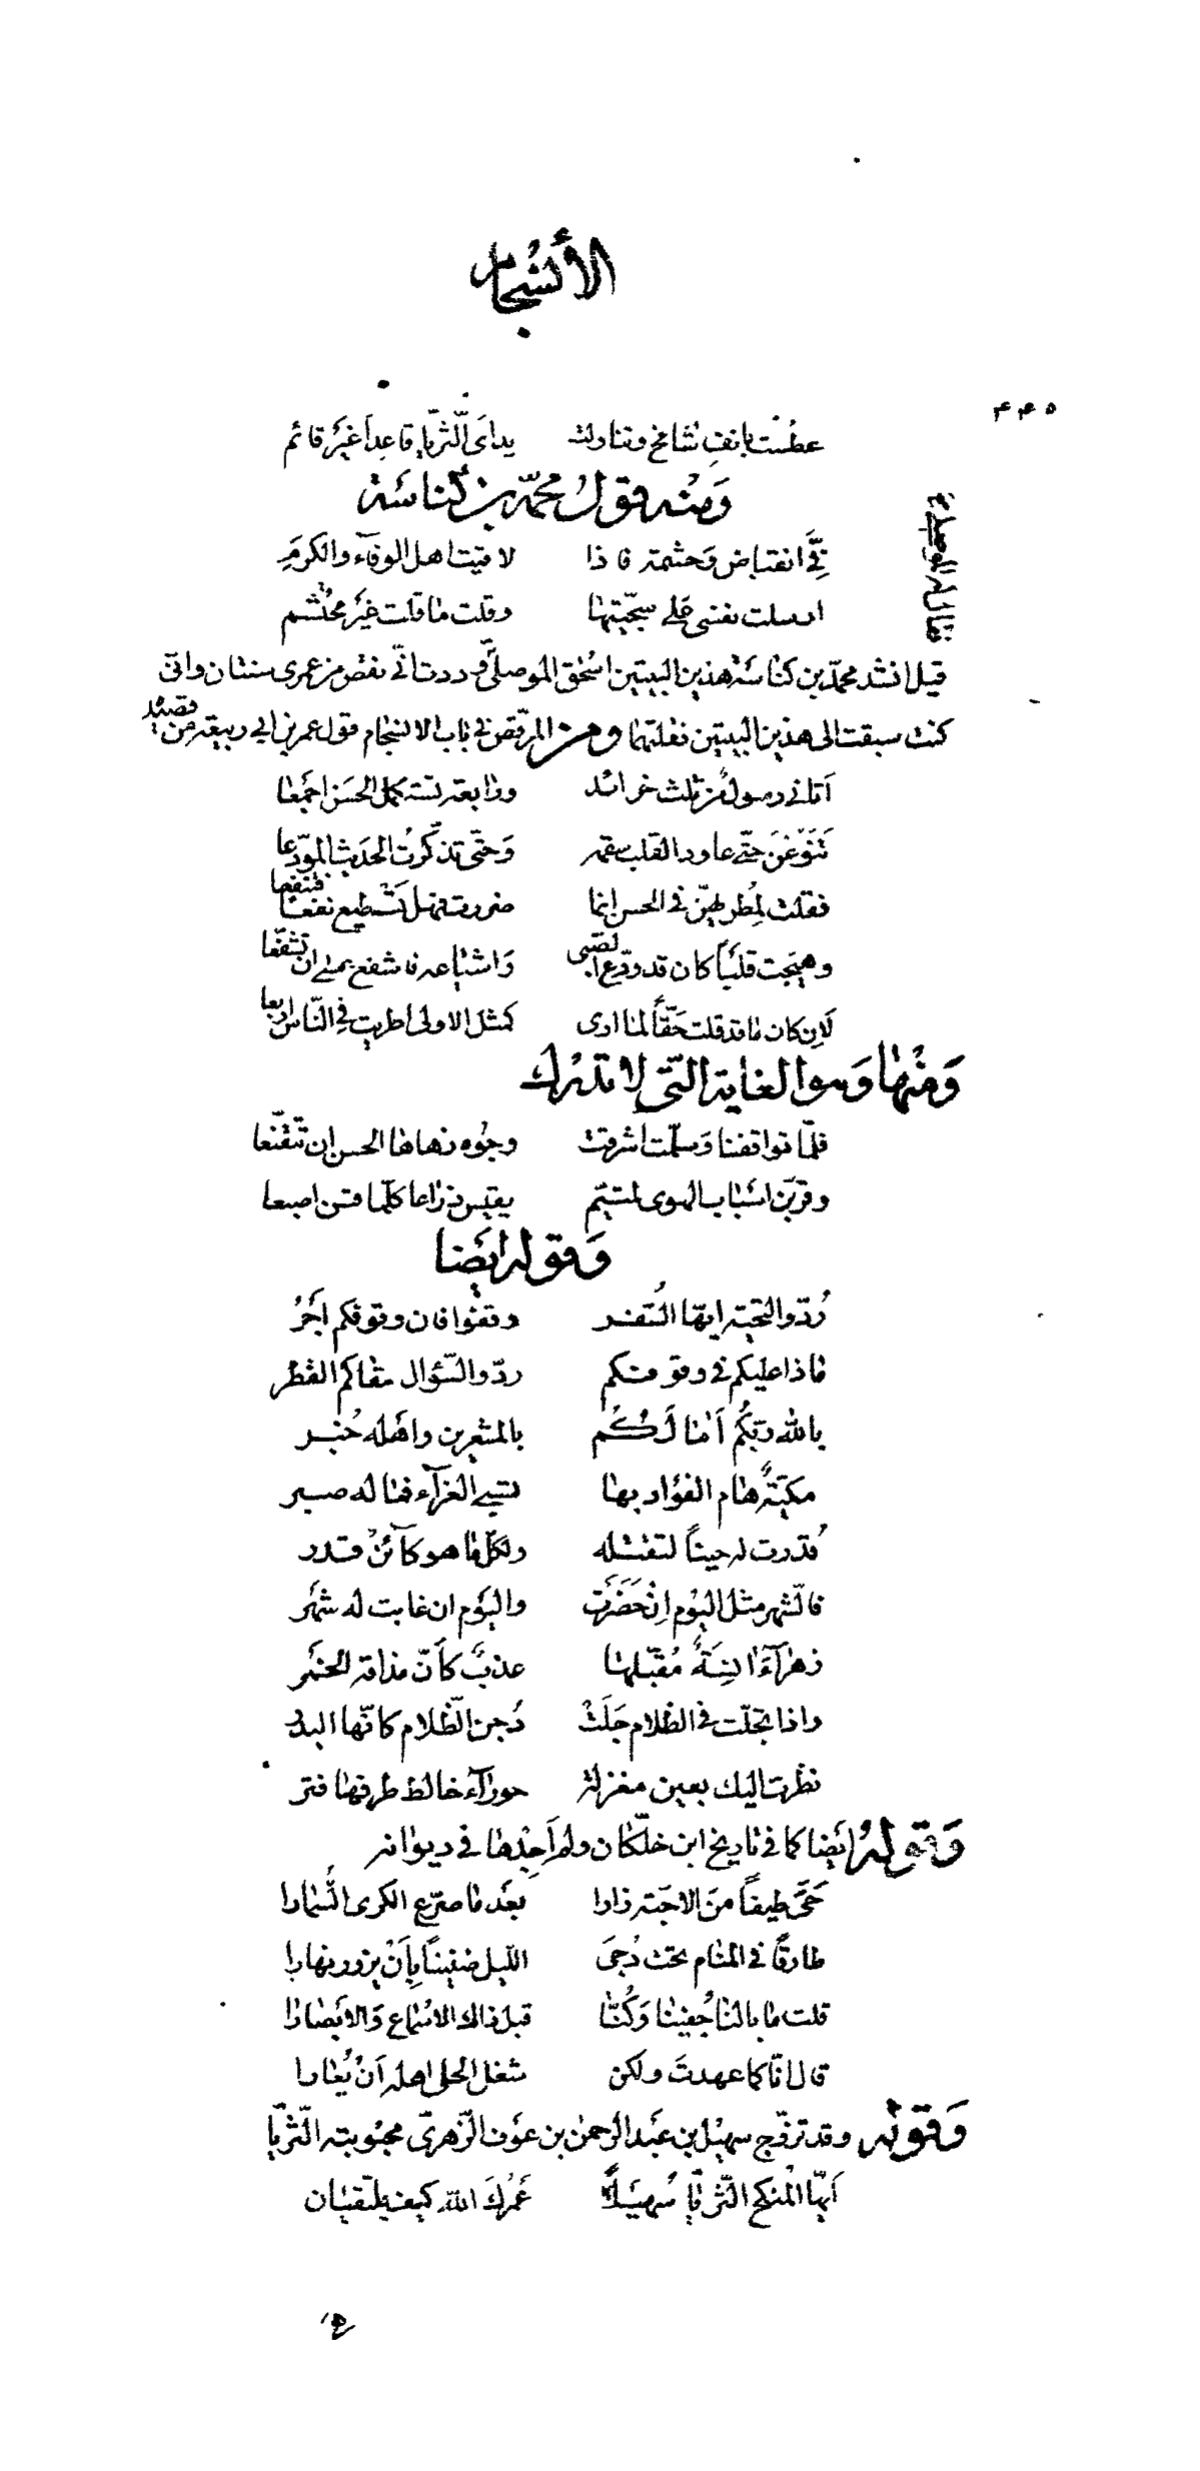 الأنسجام
۴۴۵
عطست بانف شامخ وتناولت يداى الثّريا قاعداً غير قائم
وَمنه قول محمّد بن كناسة
فيَّ انقباض وَحشمة فاذا لاقيت اهل الوفآء والكرمِ
ارسلت نفسى عَلى سجيّتها وقلت ما قلت غَير محتشم
قيل انشد محمّد بن كناسَة هذين البيتين اسْحٰق الموصلىّ فقال له الموصلى وددت انّى نقص من عمرى سنتان وانّى
كنت سبقت الى هذين البيتين فقلتهما ومن المرقّص فى باب الانسجام قول عمر بن ابى ربيعة من قصيد
اَتانى رسول من ثلث خرائد ورابعة تستكمل الحسَن اجمَعا
حتّى عاود القلب سقمه وَحتّى تذكّرتُ الحَديث المودّعا
فقلت لمُطريهنّ فى الحسن انما ضررت فهل تَسْطيع نفعا فتنفعا
وهيّجت قلبًا كان قد ودّع الصبى وَاشياعه فاشفع عسى ان تشفّعا
لَاِن كان ما قد قلت حَقّاً لما ارى كمثل الاولى اطريت فى النّاس اربعا
وَمنهٰا وَهوا لغاية التّى لا تدرك
فلمّا تواقفنا وَسلّمت اشرقت وجُوه زهاها الحسن ان تتقنّعا
وقرّبن اسَبٰاب الهوى لمتيّم يقيس ذراعا كلّما قسن اصبعا
وَقوله ايَضا
رُدّوا التحيّة ايّها السُفر وقفوا فان وقوفكم اجَرُ
ماذا عليكم فى وقوفكم ردّوا السّؤال سقاكم القطر
بالله ربّكُم اَمٰا لَكُم بالمشعرين واهَله خُبر
مكيّةٌ هٰام الفؤاد بهٰا نسى العزآء فمٰا له صبر
قُدرت له حيناً لتقتله ولكلّ ما هو كآئنٌ قدر
فالشّهر مثل اليَوم اِنْ حَضَرَت واليَوم ان غابت له شهَر
زهرآءَ انِسَةٌ مُقبّلهٰا عذبٌ كأنّ مذاقه الخمَر
واذا تجلّت فى الظلام جَلَتْ دُجن الظّلام كانّها البدر
نظرت اليك بعين مغزلة حورآء خالط طرفهٰا فتر
وَقولهُ ايَضا كما فى تاريخ ابن خلّكان ولم اَجِدْهٰا فى ديوانه
حَىّ طيفاً منَ الاحبّة زارا بعَد ما صرّع الكرى السُّمارا
طارقاً فى المنام تحت دُجىَ اللّيل ضنيناً باَنْ يزور نهارا
قلت ما بالنا جُفينا وَكُنّا قبل ذاك الاسْماع وَالاَبصٰارا
قال انّا كما عهدتَ ولكن شغل الحلى اهله اَنْ يُعٰارا
وَقوله وقد تزوّج سهيْل بن عَبد الرّحمٰن بن عَوف الزّهرىّ محبُوبته الثّريّا
اَيّها المُنكح الثّريّا سُهيَلاً عَمرُكَ اللّٰه كيف يلتقيٰان